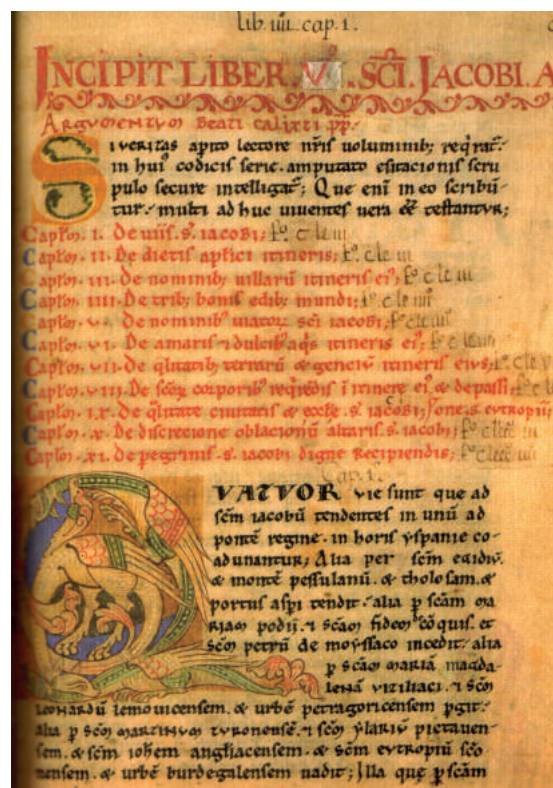 lib. iiii. cap. 1.
INCIPIT LIBER .V. SCI. JACOBI. A
Argumentum beati calixti pp.
Si veritas apito lectore nris uoluminib; reqrat'.
in hui' codicis serie. amputato esitacionis scru
pulo secure intelligat'; Que eni in eo scribu-
tur. multi ad huc uiuentes uera ee testantur;
Caplm. I. De uiis. s. iacobi; fº c le iii
Caplm. II. De dietis aplici itineris; fº c le iii
Caplm. III. De nominib; uillaru itineris ei'; fº c le iii
Caplm. IIII. De trib; bonis edib; mundi; fº c le iiii
Caplm. V. De nominib' uiator sci iacobi; fº c le iiii
Caplm. VI. De amaris 7 dulcib' aqs itineris ei';
Caplm. VII. De qlitatib; terraru & genciu itineris eius; fº c le
Caplm. VIII. De scor corporib' reqredis i itinere ei' & de passi
Caplm. IX. De qlitate ciuitatis & eccle. s. iacobi;
Caplm. X. De discrecione oblacionu altaris. s. iacobi;
Caplm. XI. De peregrinis. s. iacobi digne recipiendis;
Cap. 1.
QVATVOR vie sunt que ad
scm iacobu tendentes in unu ad
ponte regine. in horis yspanie co-
adunantur; Alia per scm egidiu.
& monte pessulanu. & tholosam. &
portus aspi tendit. alia p scam ma
riam podii. 7 scam fidem coquis. et
scm petru de moyssaco incedit. alia
p scam maria magda-
lena viziliaci. 7 scm
leonardu lemovicensem. & urbe petragoricensem pgit.
alia p scm martinum turonense. 7 scm ylariu pictauen-
sem. & scm iohem angliacensem. & scm eutropiu sco-
nensem. & urbe burdegalensem uadit; Illa que p scam